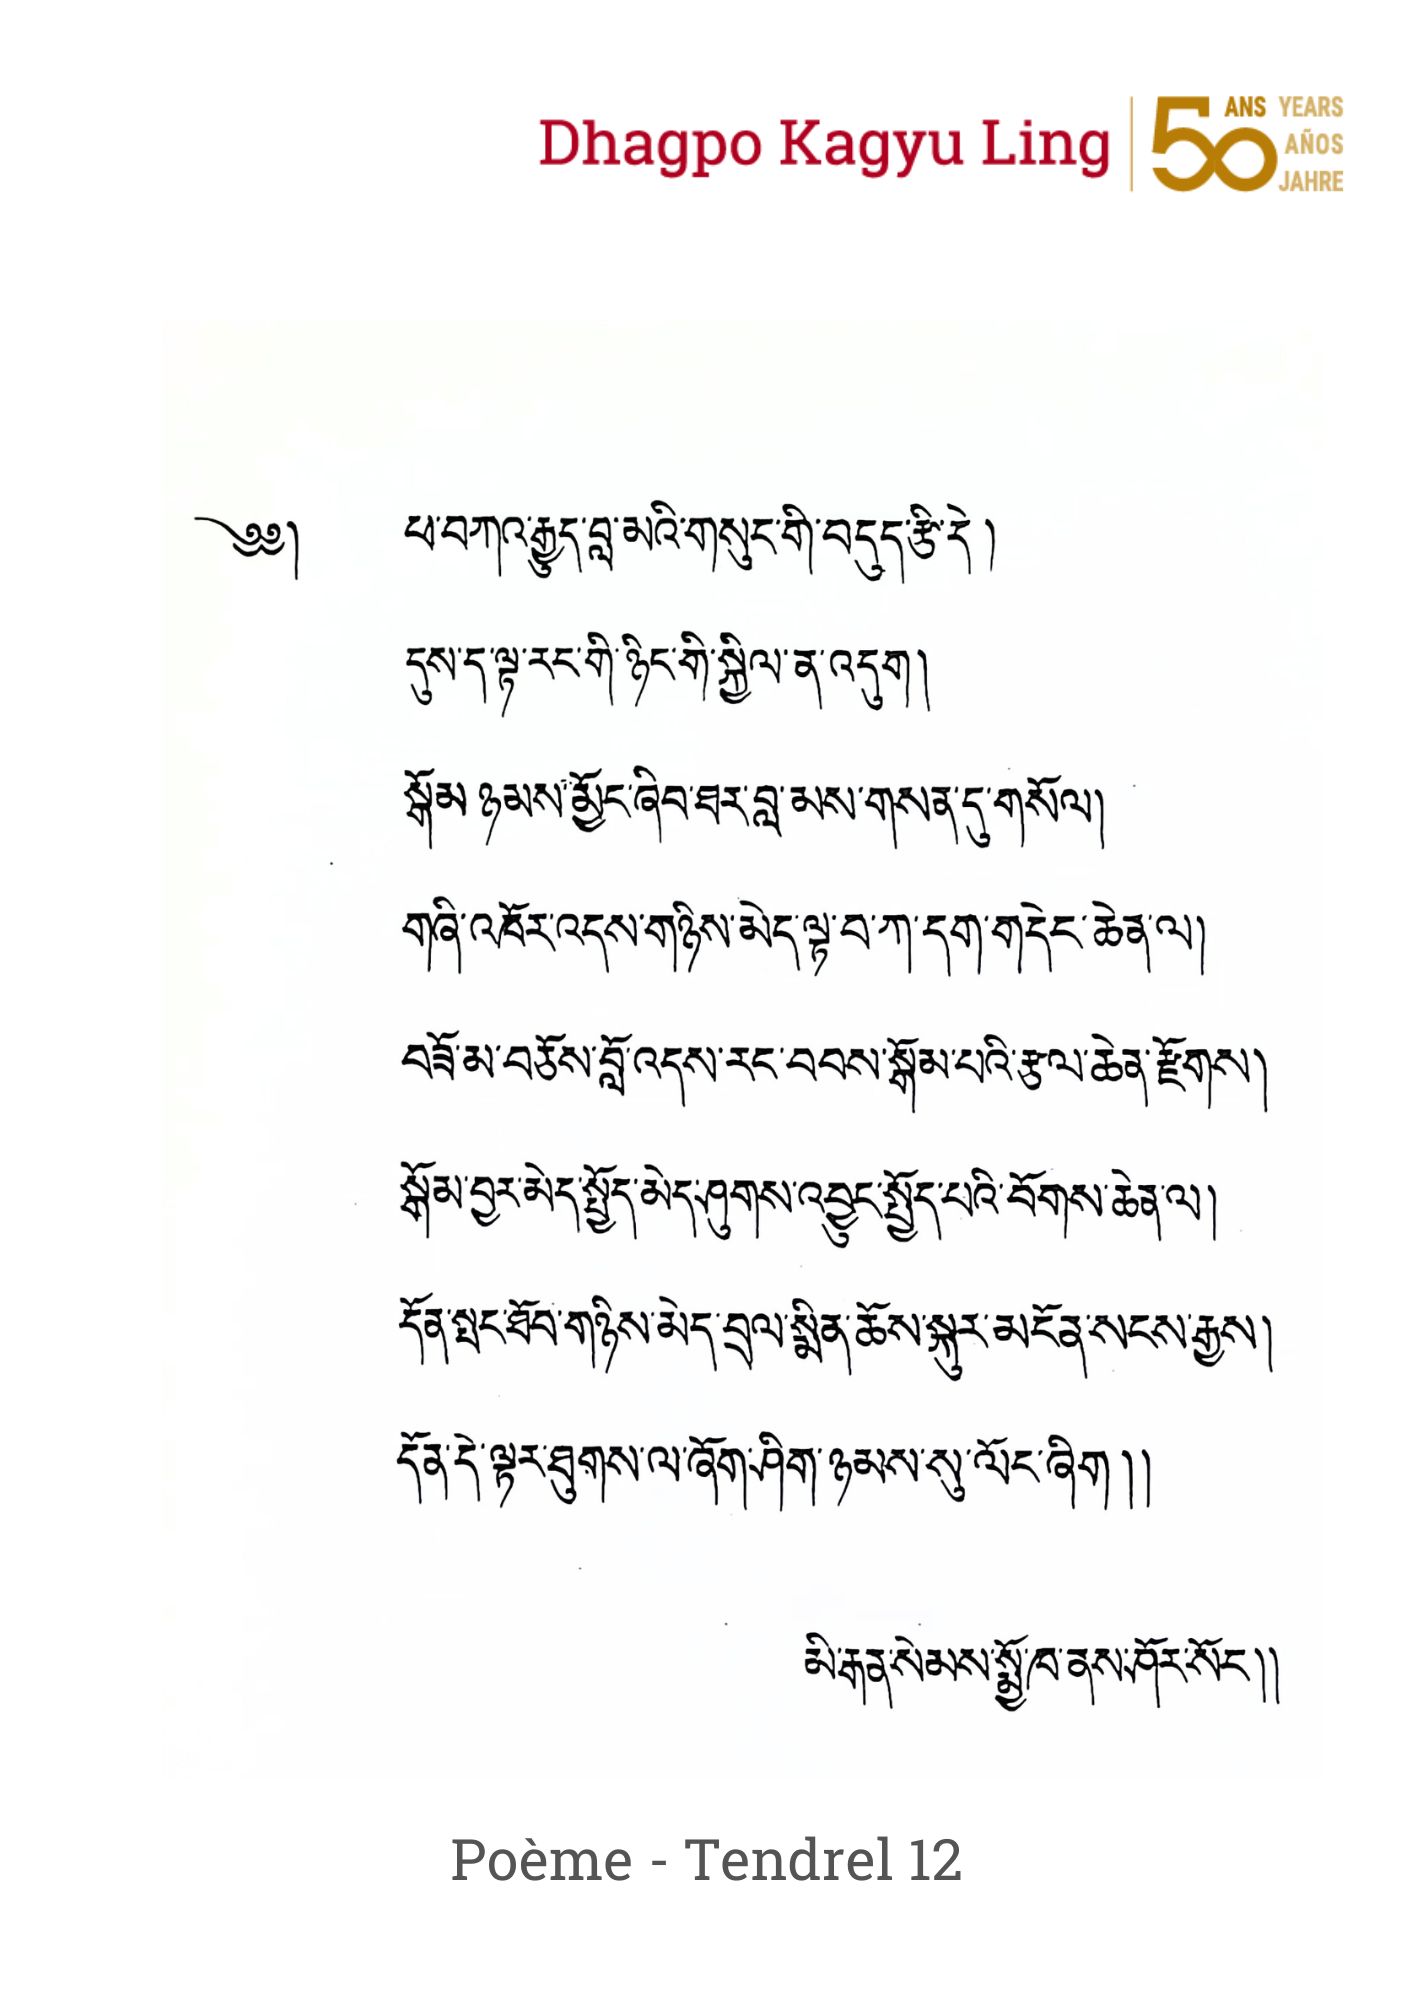 Dhagpo Kagyu Ling
50 ANS YEARS
AÑOS
JAHRE
༄༅། ཕ་བཀའ་རྒྱུད་བླ་མའི་གསུང་གི་བདུད་རྩི་དེ །
དུས་ད་ལྟ་རང་གི་ཉིང་གི་སྐྱིལ་ན་འདུག །
སྒོམ་ཉམས་མྱོང་ཞིབ་ཐར་བླ་མས་གསན་དུ་གསོལ།
གཞི་འཁོར་འདས་གཉིས་མེད་ལྟ་བ་ཀ་དག་གདེང་ཆེན་ལ།
བཟོ་མ་བཅོས་བློ་འདས་རང་བབས་སྒོམ་པའི་རྩལ་ཆེན་རྫོགས།
སྒོམ་བྱར་མེད་སྤྱོད་མེད་ཤུགས་འབྱུང་སྤྱོད་པའི་བོགས་ཆེན་ལ།
དོན་སྤང་ཐོབ་གཉིས་མེད་བྲལ་སྨིན་ཆོས་སྐུར་མངོན་སངས་རྒྱས།
དོན་དེ་ལྟར་ཐུགས་ལ་ཞོག་ཤིག་ཉམས་སུ་ལོང་ཞིག །།
མི་རྒན་སེམས་སྨྱོ་ཁ་ནས་ཤོར་སོང་།།
Poème - Tendrel 12